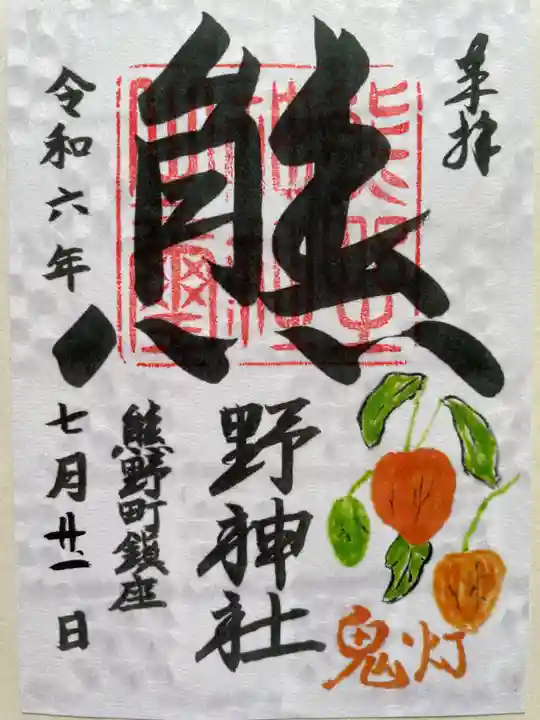 奉拝
熊野神社
熊野町鎮座
令和六年七月廿一日
鬼灯